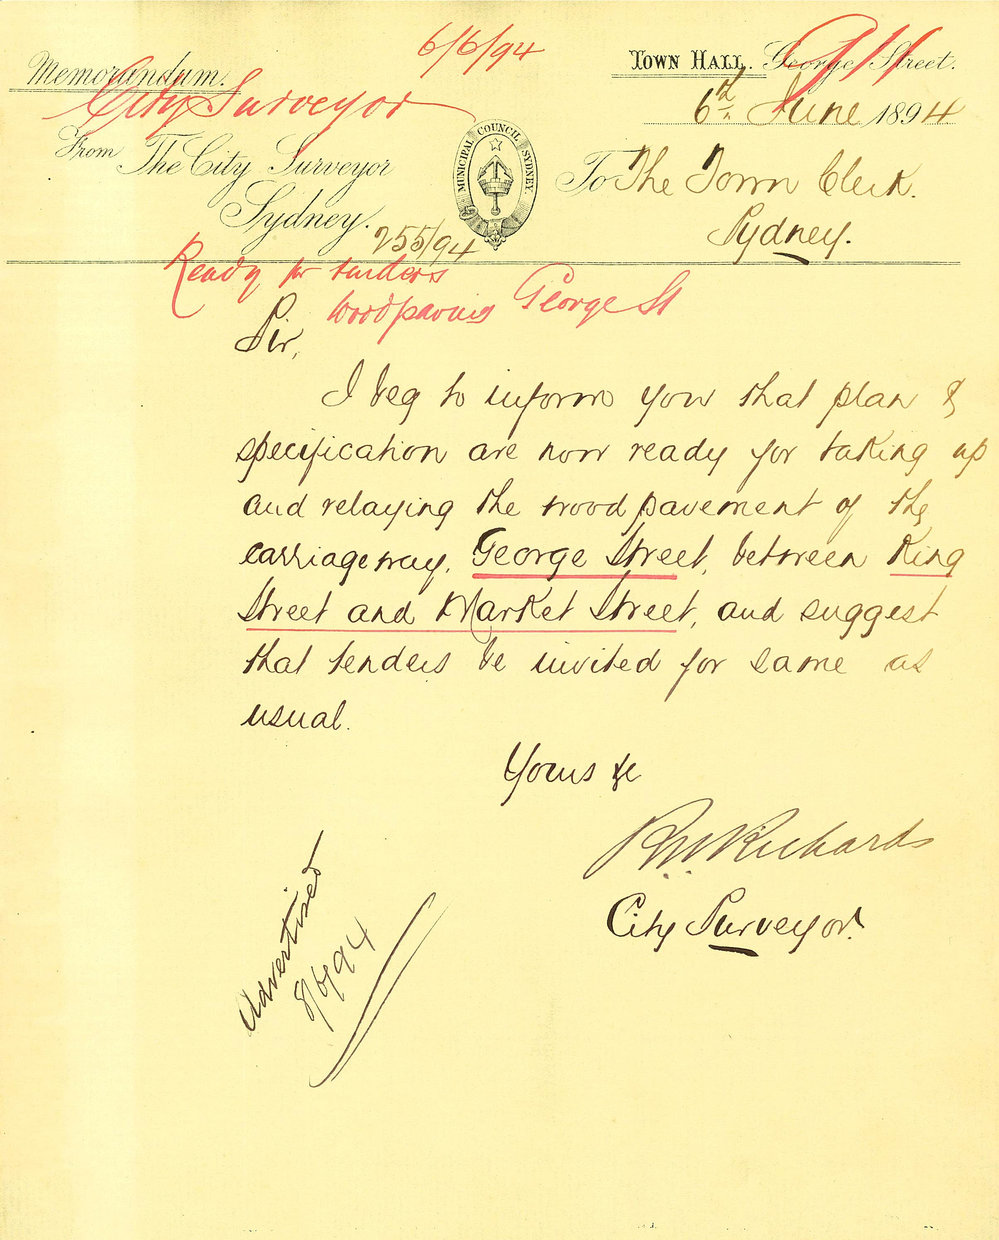 6/6/94
Memorandum.
City Surveyor
TOWN HALL. George Street.
6th June 1894
From The City Surveyor
Sydney.
MUNICIPAL COUNCIL SYDNEY.
To The Town Clerk.
Sydney.
255/94
Ready for tenders
Woodpaving George St
Sir,
I beg to inform you that plan &
specification are now ready for taking up
and relaying the wood pavement of the
carriageway, George Street, between King
Street and Market Street, and suggest
that tenders be invited for same as
usual.
Yours &c
RWRichards
City Surveyor.
Advertised
8/6/94